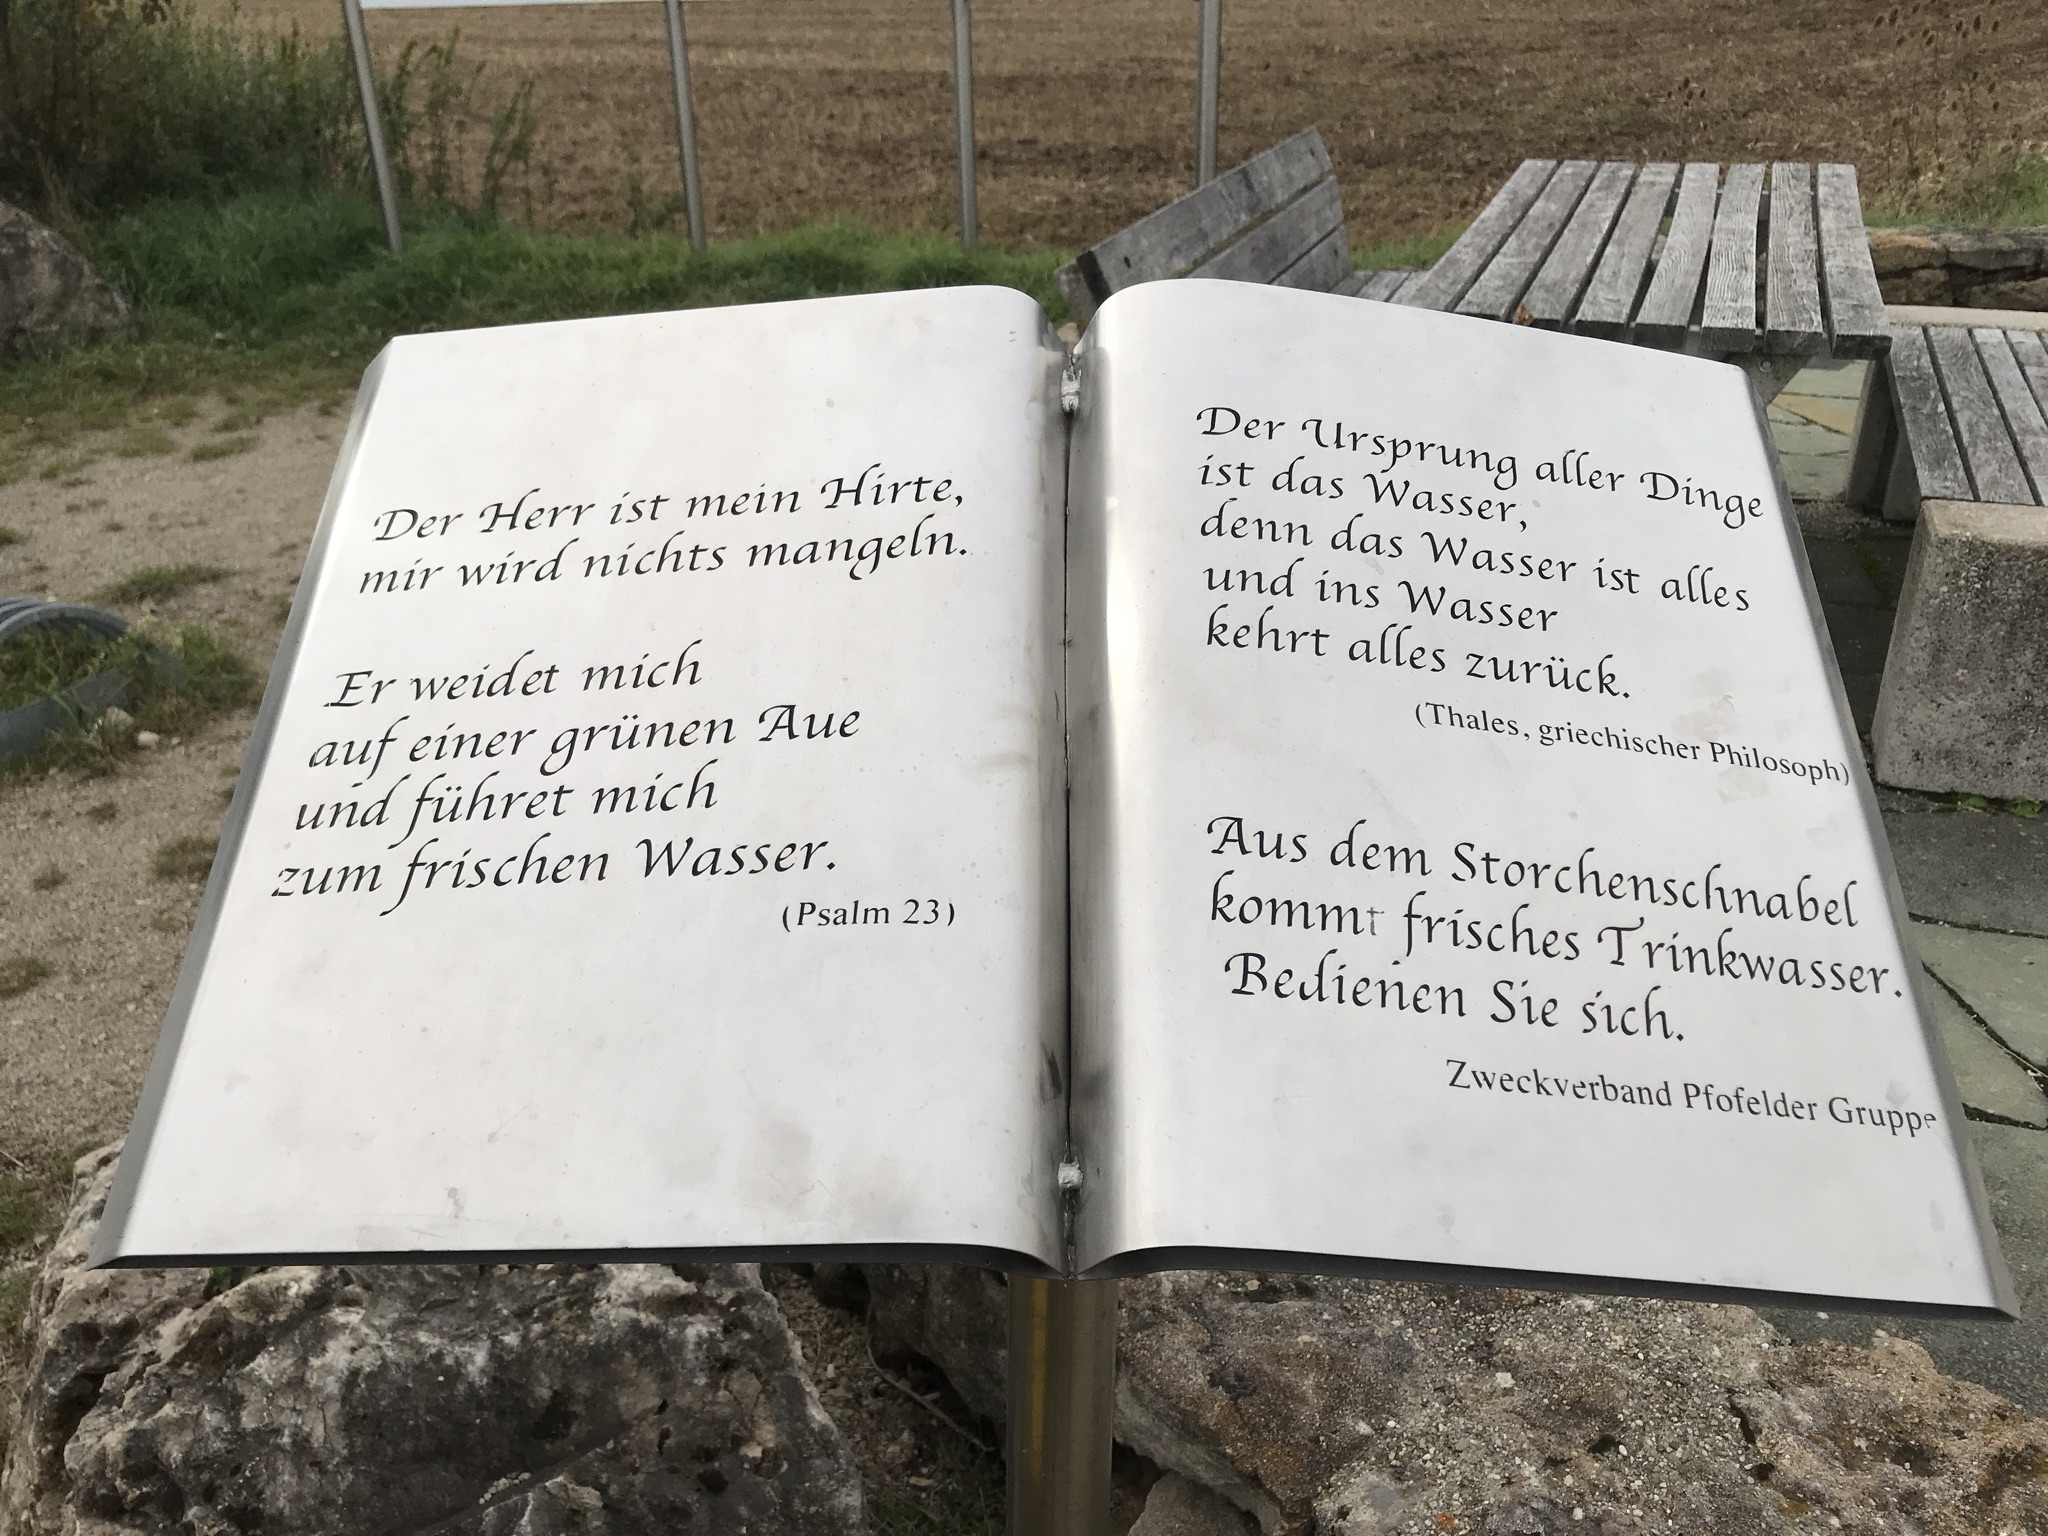 Der Herr ist mein Hirte,
mir wird nichts mangeln.
Er weidet mich
auf einer grünen Aue
und führet mich
zum frischen Wasser.
(Psalm 23)
Der Ursprung aller Dinge
ist das Wasser,
denn das Wasser ist alles
und ins Wasser
kehrt alles zurück.
(Thales, griechischer Philosoph)
Aus dem Storchenschnabel
kommt frisches Trinkwasser.
Bedienen Sie sich.
Zweckverband Pfofelder Gruppe